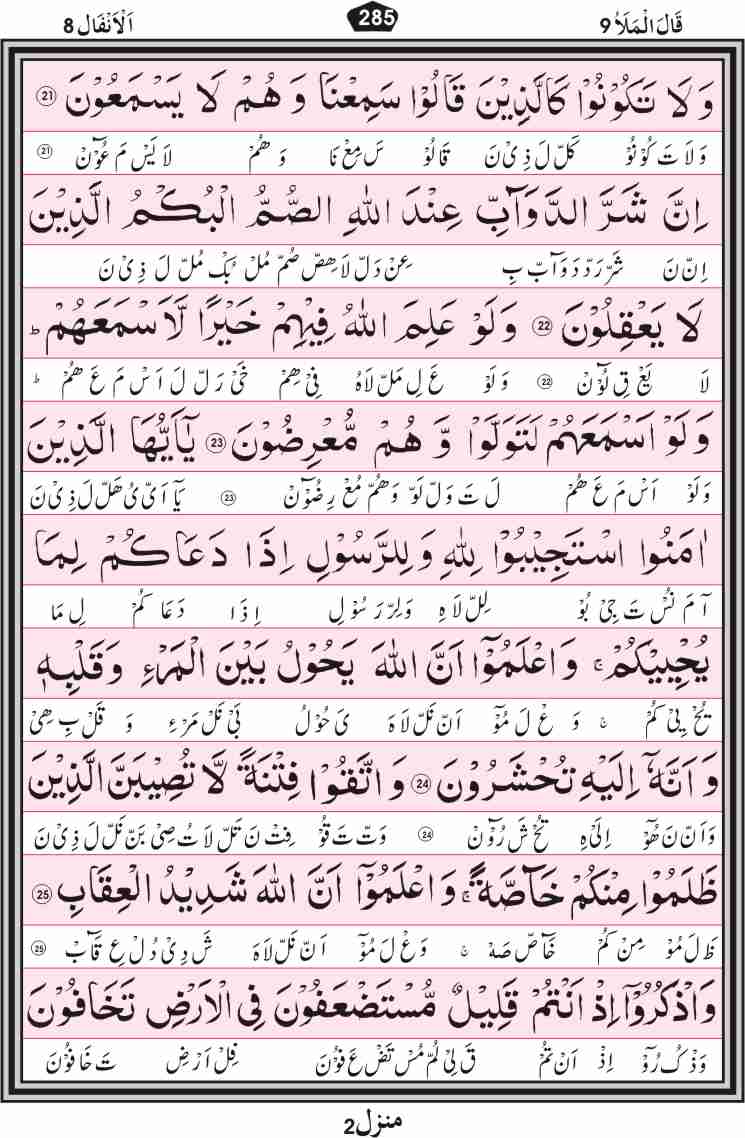 قَالَ الْمَلَاُ 9 285 اَلْاَنْفَال 8
وَ لَا تَكُوْنُوْا كَالَّذِيْنَ قَالُوْا سَمِعْنَا وَ هُمْ لَا يَسْمَعُوْنَ 21
وَ لَا تَ كُوْ نُوْ كَلّ لَ ذِىْ نَ قَا لُوْ سَ مِعْ نَا وَ هُمْ لَا يَسْ مَ عُوْٓنْ 21
اِنَّ شَرَّ الدَّوَآبِّ عِنْدَ اللّٰهِ الصُّمُّ الْبُكْمُ الَّذِيْنَ
اِنّ نَ شَرّ رَدّ دَ وَآبّ بِ عِنْ دَلّ لَا هِصّ صُمّ مُلْ بُكْ مُلّ لَ ذِىْ نَ
لَا يَعْقِلُوْنَ 22 وَلَوْ عَلِمَ اللّٰهُ فِيْهِمْ خَيْرًا لَّاَسْمَعَهُمْ ؕ
لَا يَعْ قِ لُوْٓنْ 22 وَ لَوْ عَ لِ مَلّ لَا هُ فِىْ هِمْ خَىْ رَلّ لَ اَسْ مَ عَ هُمْ ؕ
وَ لَوْ اَسْمَعَهُمْ لَتَوَلَّوْا وَّ هُمْ مُّعْرِضُوْنَ 23 يٰۤاَيُّهَا الَّذِيْنَ
وَ لَوْ اَسْ مَ عَ هُمْ لَ تَ وَلّ لَوْ وَهُمّ مُعْ رِضُوْٓنْ 23 يَآ اَىّ ىُ هَلّ لَ ذِىْ نَ
اٰمَنُوا اسْتَجِيْبُوْا لِلّٰهِ وَ لِلرَّسُوْلِ اِذَا دَعَاكُمْ لِمَا
آ مَ نُسْ تَ جِىْ بُوْ لِلّ لَا هِ وَلِرّ رَ سُوْ لِ اِ ذَا دَ عَا كُمْ لِ مَا
يُحْيِيْكُمْ ۚ وَ اعْلَمُوْۤا اَنَّ اللّٰهَ يَحُوْلُ بَيْنَ الْمَرْءِ وَ قَلْبِهٖ
يُحْ يِىْ كُمْ ۚ وَ عْ لَ مُوْٓ اَنّ نَلّ لَا هَ ىَ حُوْ لُ بَىْ نَلْ مَرْ ءِ وَ قَلْ بِ هِىْ
وَ اَنَّهٗۤ اِلَيْهِ تُحْشَرُوْنَ 24 وَ اتَّقُوْا فِتْنَةً لَّا تُصِيْبَنَّ الَّذِيْنَ
وَ اَنّ نَ هُوْٓ اِلَىْ هِ تُحْ شَ رُوْٓنْ 24 وَتّ تَ قُوْ فِتْ نَ تَلّ لَا تُ صِىْ بَنّ نَلّ لَ ذِىْ نَ
ظَلَمُوْا مِنْكُمْ خَآصَّةً ۚ وَ اعْلَمُوْۤا اَنَّ اللّٰهَ شَدِيْدُ الْعِقَابِ 25
ظَ لَ مُوْ مِنْ كُمْ خَآصّ صَهْ ۚ وَعْ لَ مُوْٓ اَنّ نَلّ لَا هَ شَ دِىْ دُ لْ عِ قَآبْ 25
وَ اذْكُرُوْۤا اِذْ اَنْتُمْ قَلِيْلٌ مُّسْتَضْعَفُوْنَ فِى الْاَرْضِ تَخَافُوْنَ
وَذْ كُ رُوْٓ اِذْ اَنْ تُمْ قَ لِىْ لُمّ مُسْ تَضْ عَ فُوْنَ فِلْ اَرْضِ تَ خَا فُوْنَ
منزل 2